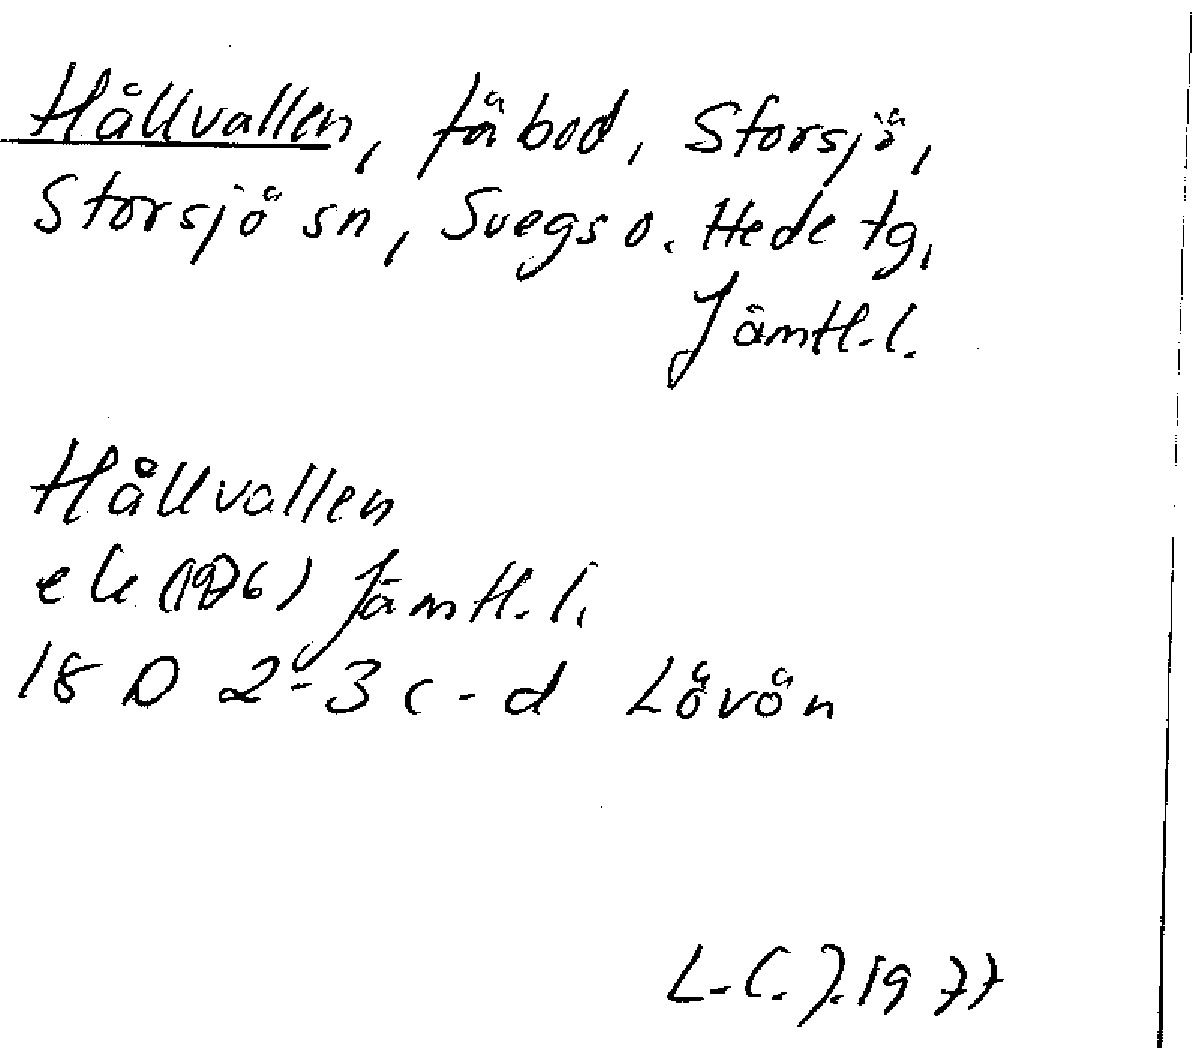 Hållvallen, fäbod, Storsjö,
Storsjö sn, Svegs o. Hede tg,
Jämtl. l.
Hållvallen
ek (1976) Jämtl. l.
18 D 2-3 c-d Lövön
L.C.J. 1977